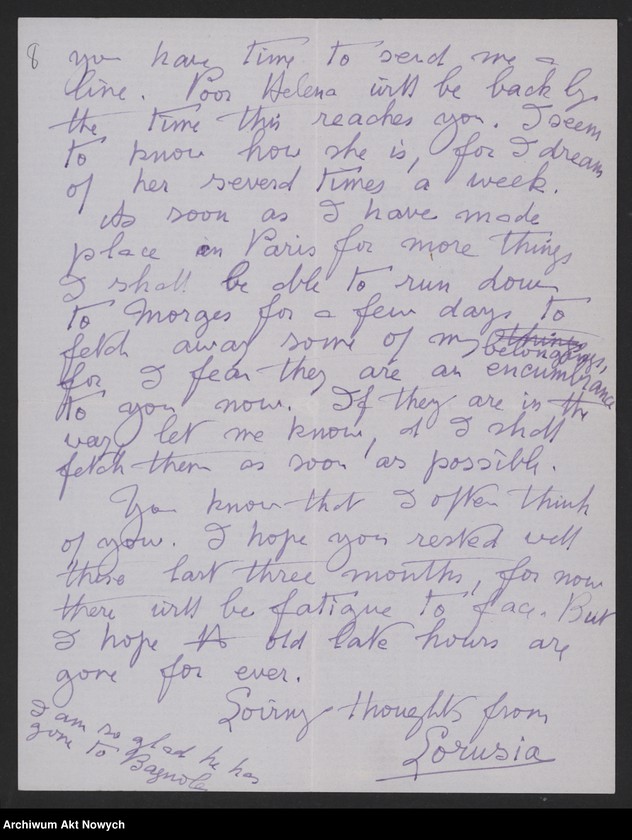 8
you have time to send me a
line. Poor Helena will be back by
the time this reaches you. I seem
to know how she is, for I dream
of her several times a week.
As soon as I have made
place in Paris for more things
I shall be able to run down
to Morges for a few days to
fetch away some of my things
belongings,
for I fear they are an encumbrance
to you now. If they are in the
way let me know, & I shall
fetch them as soon as possible.
You know that I often think
of you. I hope you rested well
these last three months, for now
there will be fatigue to face. But
I hope the old late hours are
gone for ever.
Loving thoughts from
Lorusia
I am so glad he has
gone to Bagnoles
Archiwum Akt Nowych